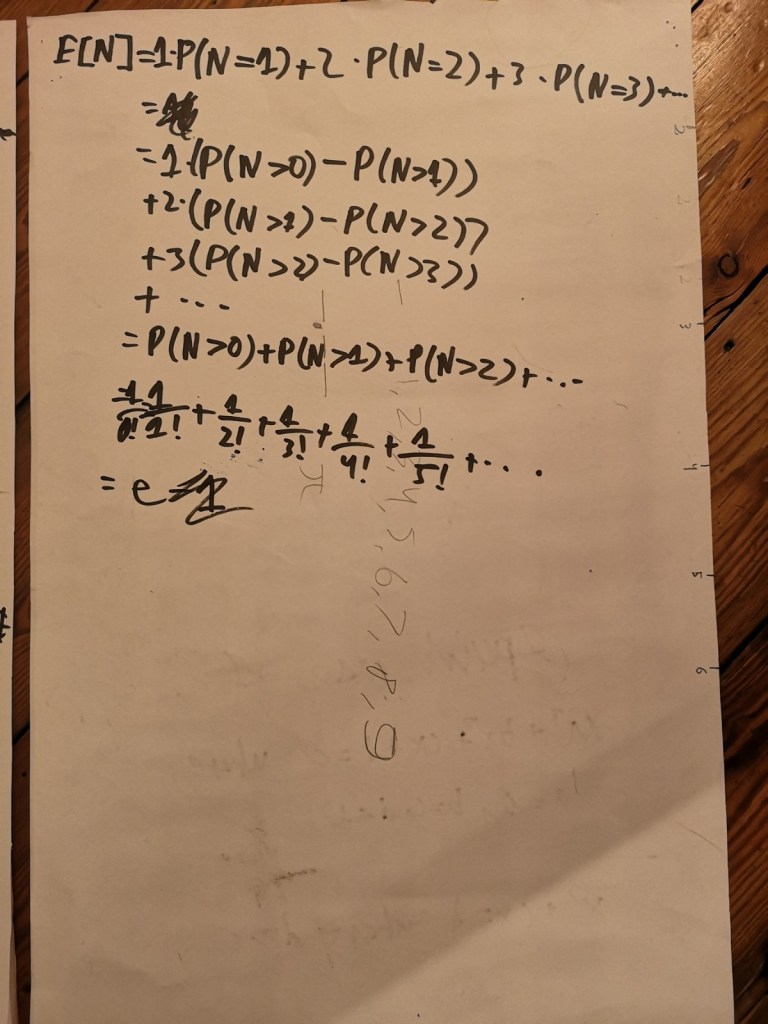 E[N]=1·P(N=1)+2·P(N=2)+3·P(N=3)+...
=
=1·(P(N>0)-P(N>1))
+2·(P(N>1)-P(N>2))
+3(P(N>2)-P(N>3))
+ ...
=P(N>0)+P(N>1)+P(N>2)+...
1/0! 1/1! + 1/2! + 1/3! + 1/4! + 1/5! + ...
= e
π
1, 2, 3, 4, 5, 6, 7, 8, 9
2
3
4
5
6